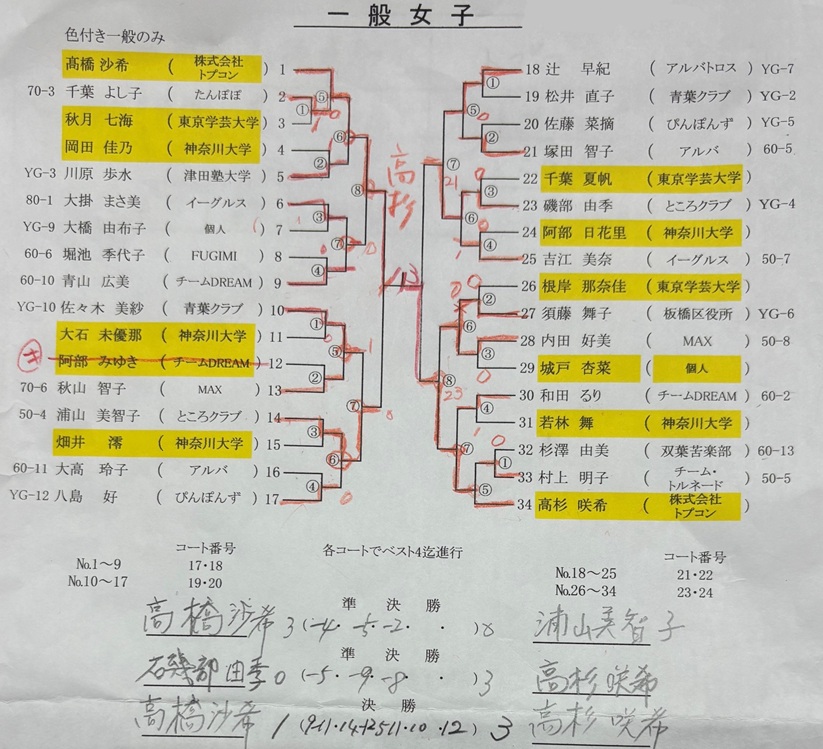 一般女子
色付き一般のみ
髙橋 沙希 ( 株式会社トプコン ) 1
70-3 千葉 よし子 ( たんぽぽ ) 2
秋月 七海 ( 東京学芸大学 ) 3
岡田 佳乃 ( 神奈川大学 ) 4
YG-3 川原 歩水 ( 津田塾大学 ) 5
80-1 大掛 まさ美 ( イーグルス ) 6
YG-9 大橋 由布子 ( 個人 ) 7
60-6 堀池 季代子 ( FUGIMI ) 8
60-10 青山 広美 ( チームDREAM ) 9
YG-10 佐々木 美紗 ( 青葉クラブ ) 10
大石 未優那 ( 神奈川大学 ) 11
キ 阿部 みゆき ( チームDREAM ) 12
70-6 秋山 智子 ( MAX ) 13
50-4 浦山 美智子 ( ところクラブ ) 14
畑井 澪 ( 神奈川大学 ) 15
60-11 大高 玲子 ( アルバ ) 16
YG-12 八島 好 ( ぴんぽんず ) 17
高杉
18 辻 早紀 ( アルバトロス ) YG-7
19 松井 直子 ( 青葉クラブ ) YG-2
20 佐藤 菜摘 ( ぴんぽんず ) YG-5
21 塚田 智子 ( アルバ ) 60-5
22 千葉 夏帆 ( 東京学芸大学 )
23 磯部 由季 ( ところクラブ ) YG-4
24 阿部 日花里 ( 神奈川大学 )
25 吉江 美奈 ( イーグルス ) 50-7
26 根岸 那奈佳 ( 東京学芸大学 )
27 須藤 舞子 ( 板橋区役所 ) YG-6
28 内田 好美 ( MAX ) 50-8
29 城戸 杏菜 ( 個人 )
30 和田 るり ( チームDREAM ) 60-2
31 若林 舞 ( 神奈川大学 )
32 杉澤 由美 ( 双葉苦楽部 ) 60-13
33 村上 明子 ( チーム・トルネード ) 50-5
34 高杉 咲希 ( 株式会社トプコン )
コート番号
No.1～9 17・18
No.10～17 19・20
各コートでベスト4迄進行
コート番号
No.18～25 21・22
No.26～34 23・24
準決勝
高橋沙希 3 (-4・-5・-2・ ・ ) 0 浦山美智子
準決勝
磯部由季 0 (-5・-9・-8・ ・ ) 3 高杉咲希
決勝
高橋沙希 1 ( ・10・12 ) 3 高杉咲希